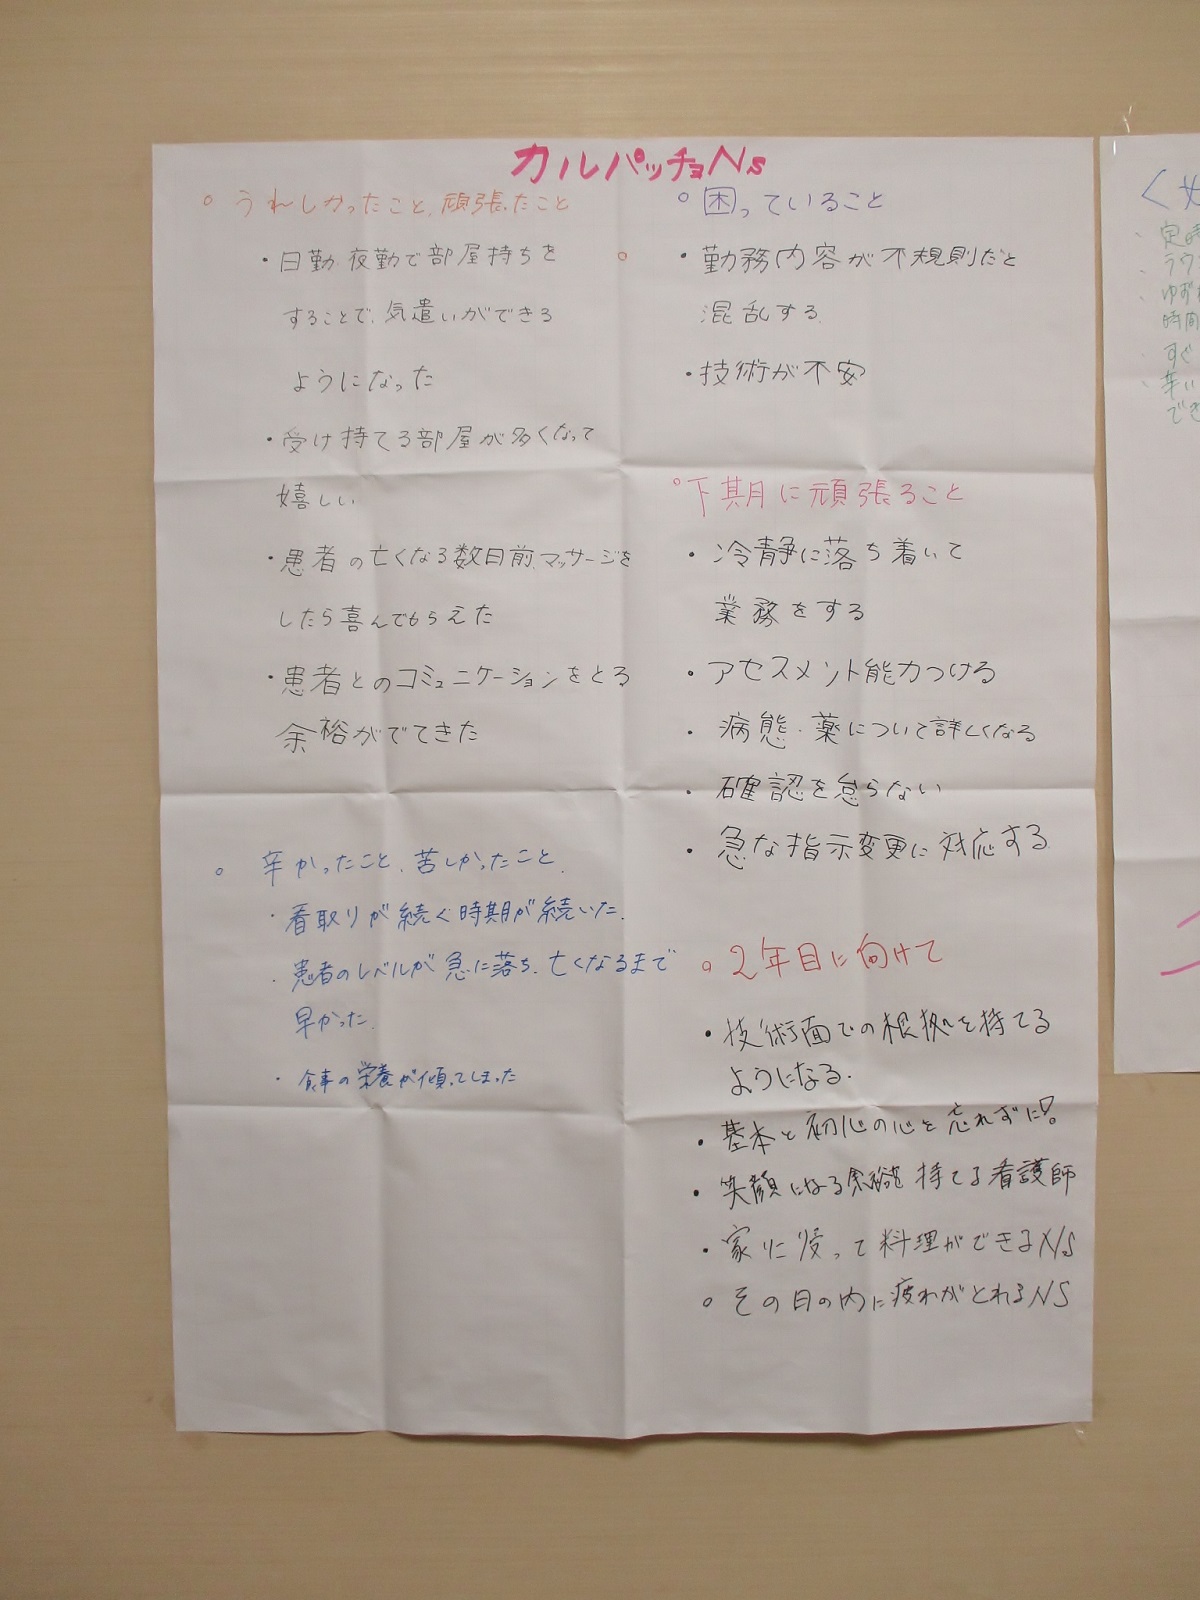 カルパッチョNs
○ うれしかったこと、頑張たこと
・日勤、夜勤で部屋持ちを
することで、気遣いができる
ようになった
・受け持てる部屋が多くなって
嬉しい
・患者の亡くなる数日前、マッサージを
したら喜んでもらえた
・患者とのコミュニケーションをとる
余裕がでてきた
○ 辛かったこと、苦しかったこと
・看取りが続く時期が続いた。
・患者のレベルが急に落ち、亡くなるまで
早かった。
・食事の栄養が傾ってしまった
○ 困っていること
・勤務内容が不規則だと
混乱する
・技術が不安
○下期に頑張ること
・冷静に落ち着いて
業務をする
・アセスメント能力つける
・病態・薬について詳しくなる
・確認を怠らない
・急な指示変更に対応する
○ 2年目に向けて
・技術面での根拠を持てる
ようになる.
・基本と初心の心を忘れずに!
・笑顔になる余裕を持てる看護師
・家に って料理ができるNS
○ その日の内に疲れがとれるNS
定時
ゆず
時間
すぐ
辛い
でき